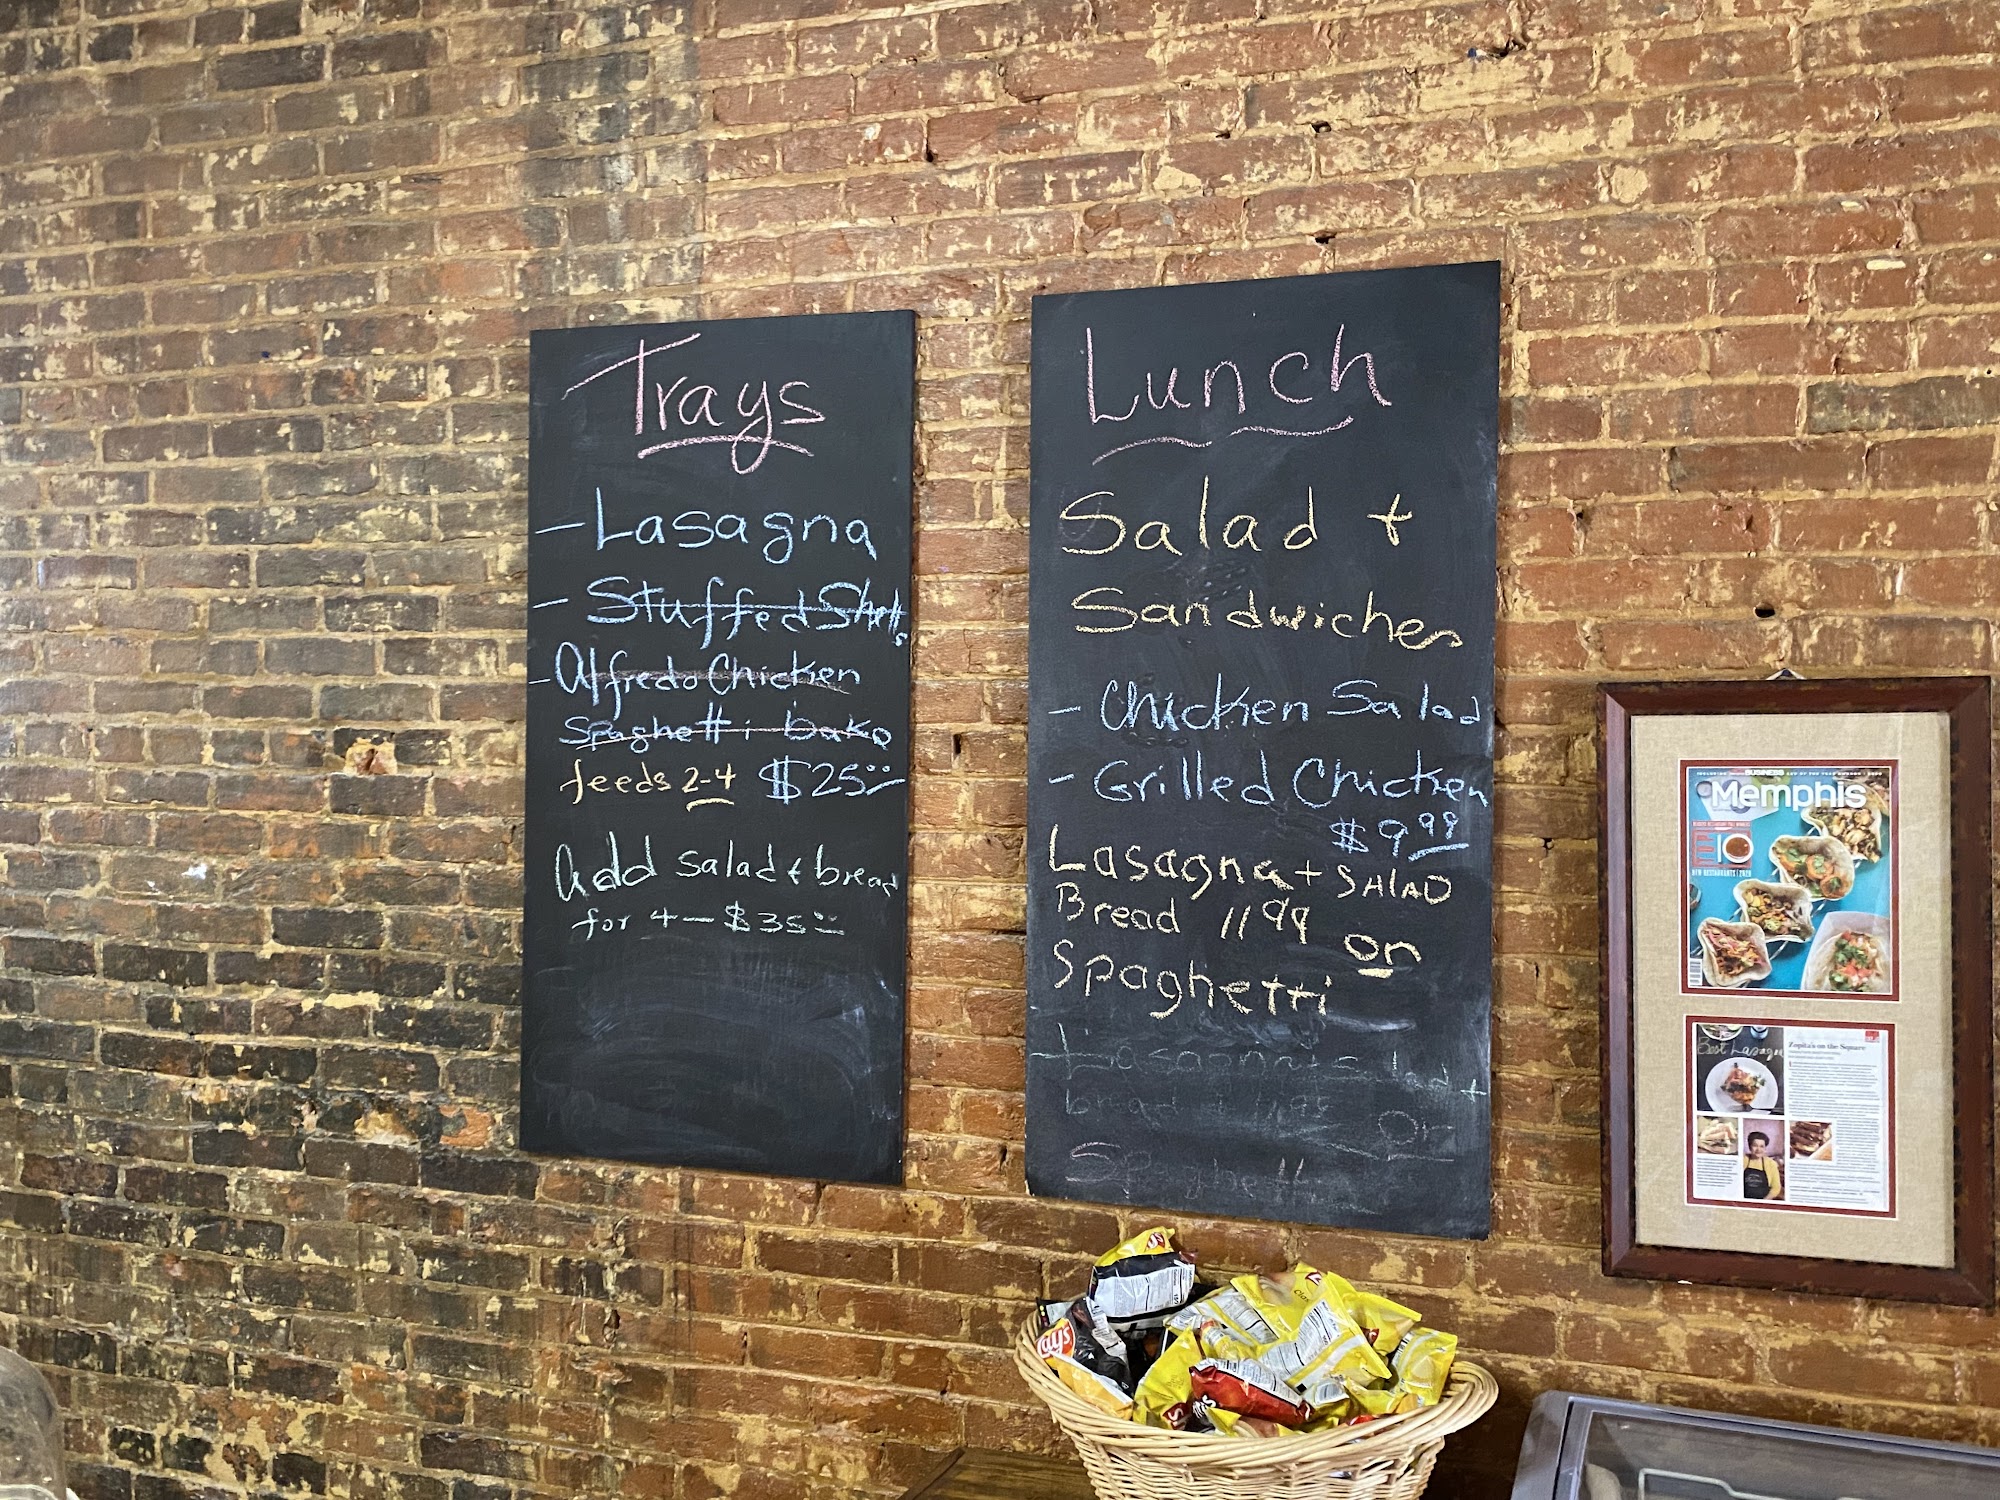 Trays
- Lasagna
- Stuffed Shells
- Alfredo Chicken
Spaghetti bake
feeds 2-4 $25
Add salad + bread
for 4 - $35
Lunch
Salad +
Sandwiches
- Chicken Salad
- Grilled Chicken
$9.99
Lasagna + SALAD
Bread 11 99 or
Spaghetti
bread
Spaghetti
Memphis
Best Lasagna
Zopita's on the Square
Lays